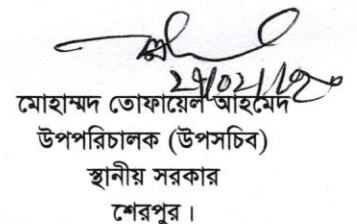 মোহাম্মদ তোফায়েল আহমেদ
উপপরিচালক (উপসচিব)
স্থানীয় সরকার
শেরপুর।